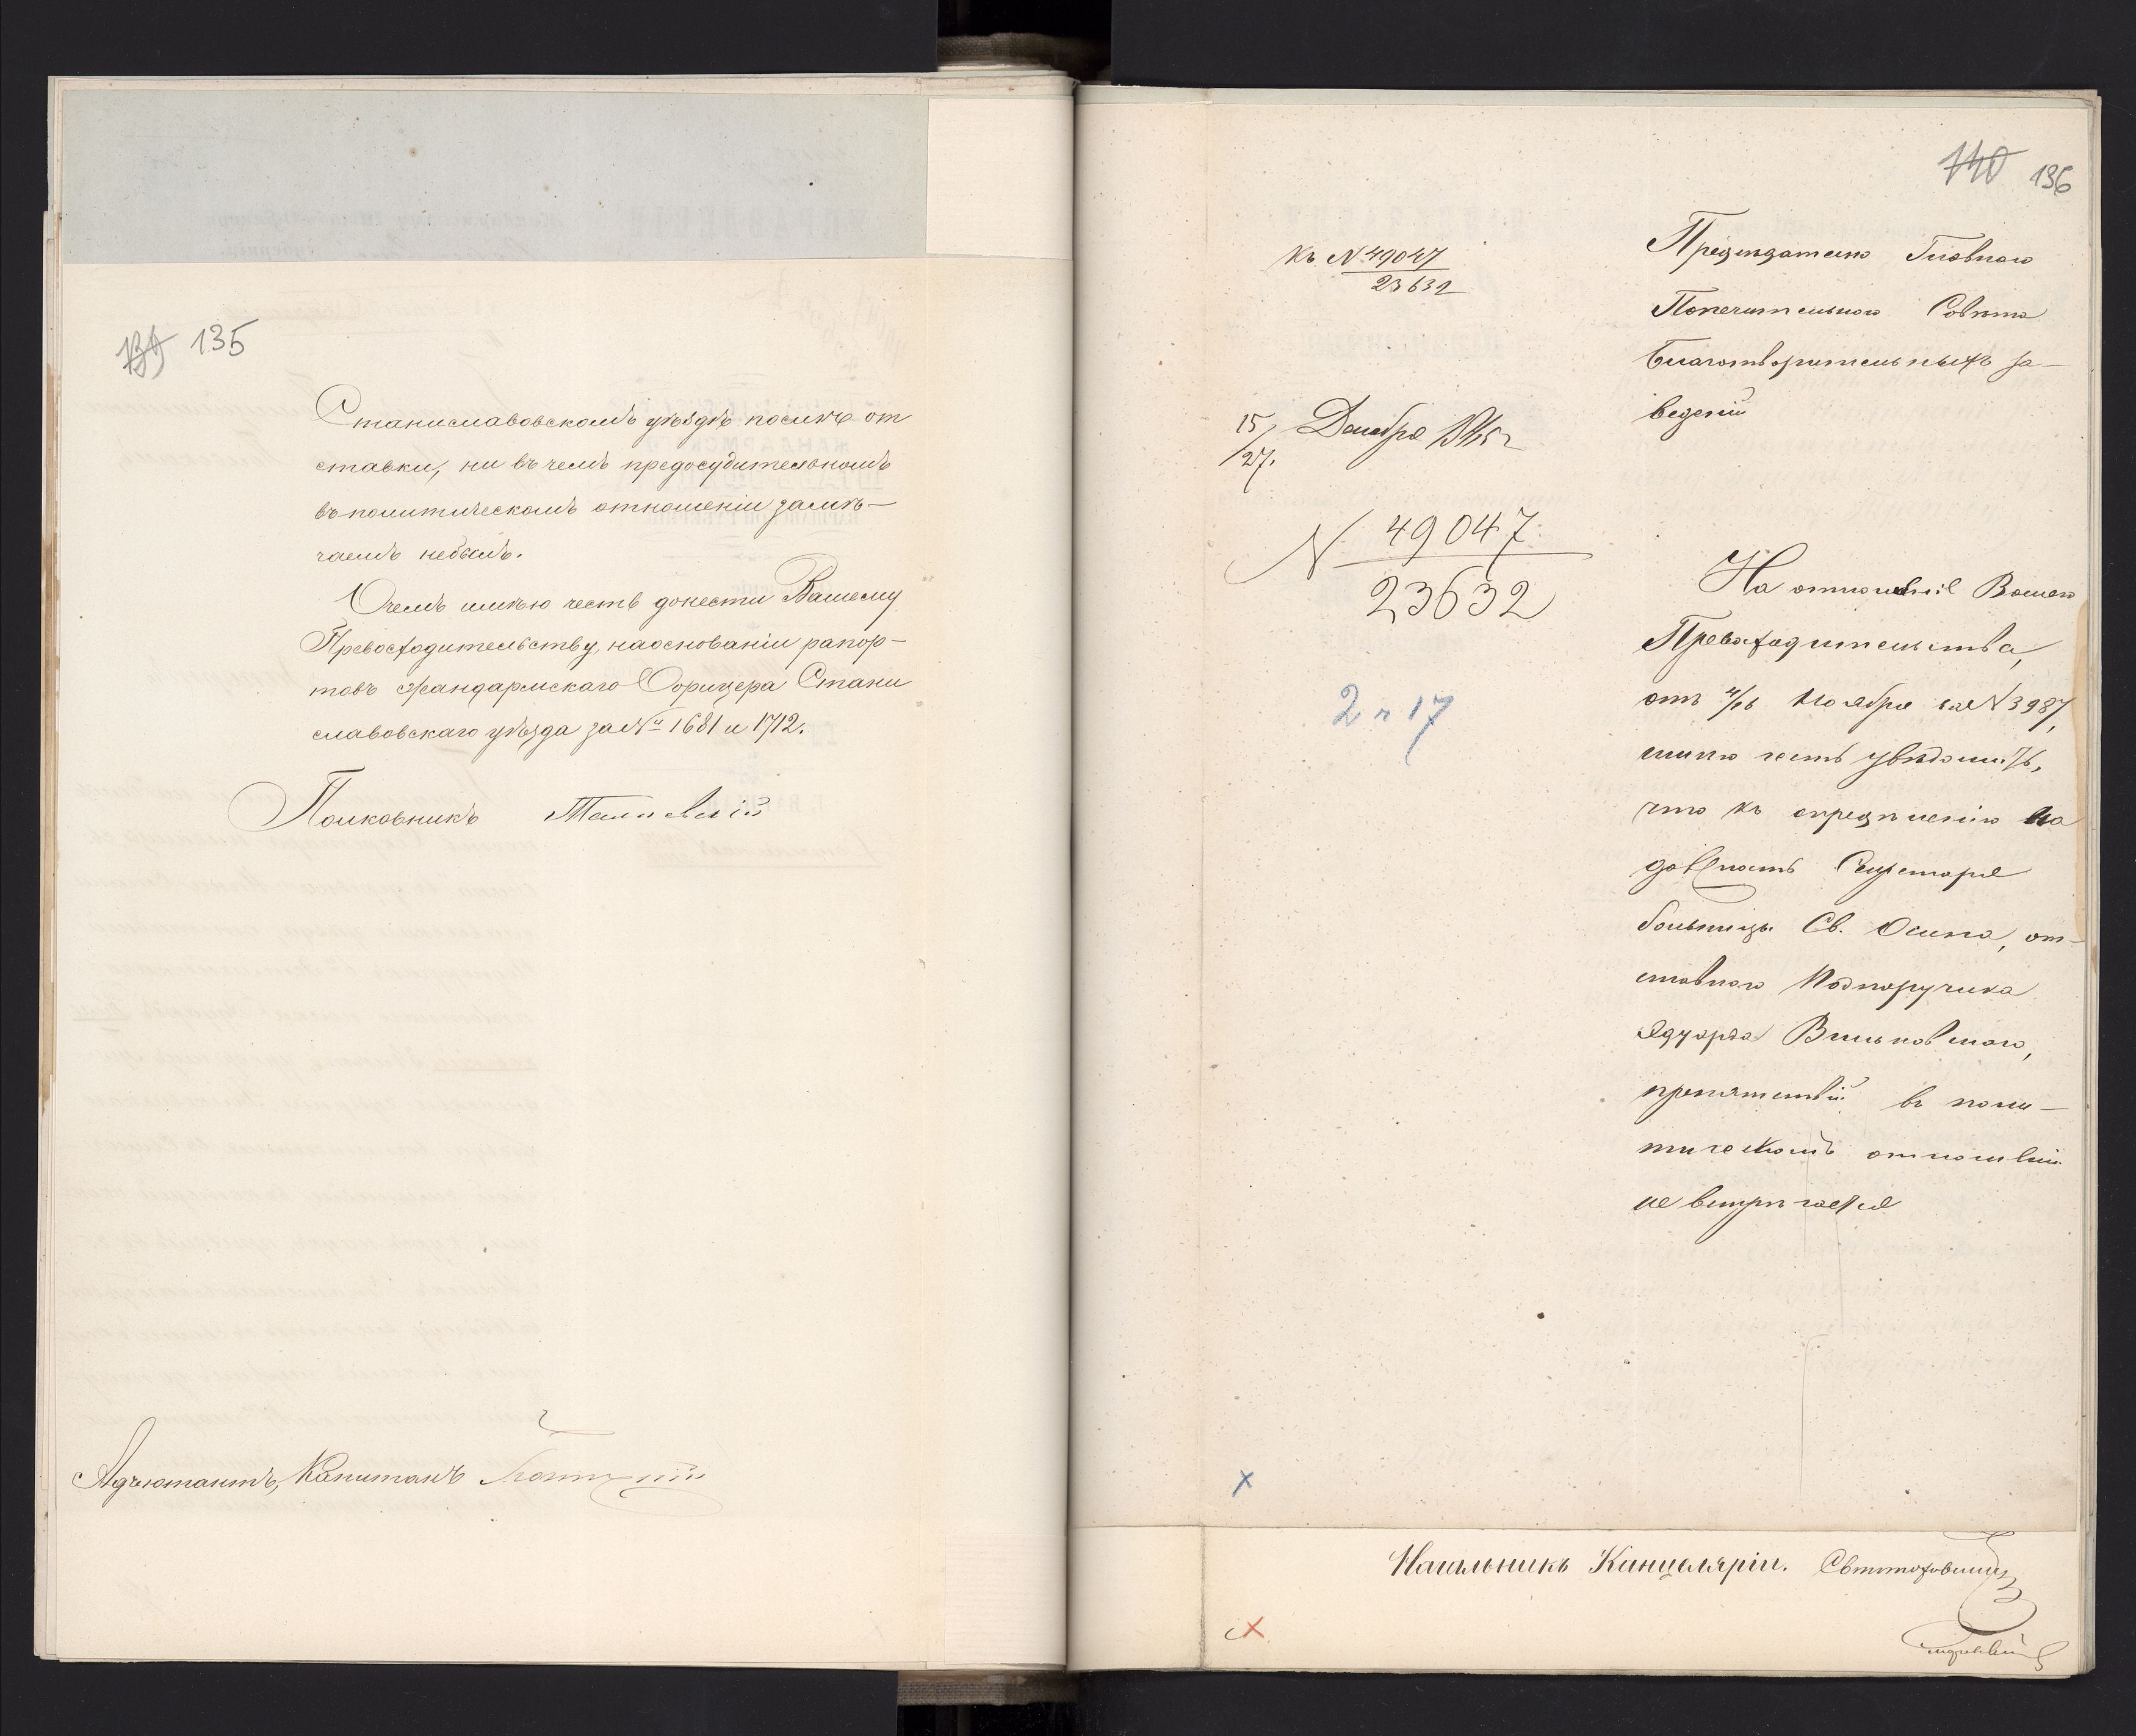 135
Станиславовскомъ уѣздѣ послѣ от
ставки, ни въ чемъ предосудительномъ
въ политическомъ отношеніи замѣ-
чаемъ небылъ.
Очемъ имѣю честь донести Вашему
Превосходительству, наоснованіи рапор-
товъ Жандармскаго Офицера Стани
славовскаго уѣзда за №№ 1681 и 1712.
Полковникъ
Адъютантъ, Капитанъ
140 136
Къ №49047
23632
Предсѣдателю Главнаго
Попечительнаго Совѣта
Благотворительныхъ за-
веденій
15/27 Декабря
№ 49047
23632
2 ч 17
На отношеніе Вашего
Превосходительства,
отъ 4/16 Ноября за №3987,
имѣю честь увѣдомить,
что къ опредѣленію на
должность Секретаря
больницы Св. Осипа, от-
ставнаго Подпоручика
Эдуарда Вильковскаго,
препятствій въ поли-
тическомъ отношеніи
не встрѣчается
Начальникъ Канцеляріи.